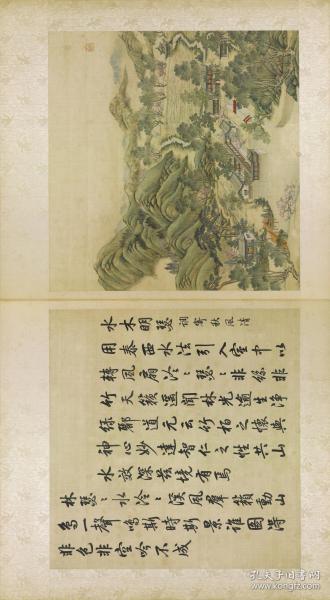 水木明瑟 調寄秋風清
用泰西水法引入室中以
轉風扇泠〻瑟〻非絲非
竹天籟遙聞林光逾生淨
綠酈道元云竹柏之懷與
神心妙達智仁之性共山
水效深茲境有焉
林瑟〻水泠〻溪風羣籟動山
鳥一聲鳴斯時斯景誰圖得
非色非空吟不成
孔夫子旧书网